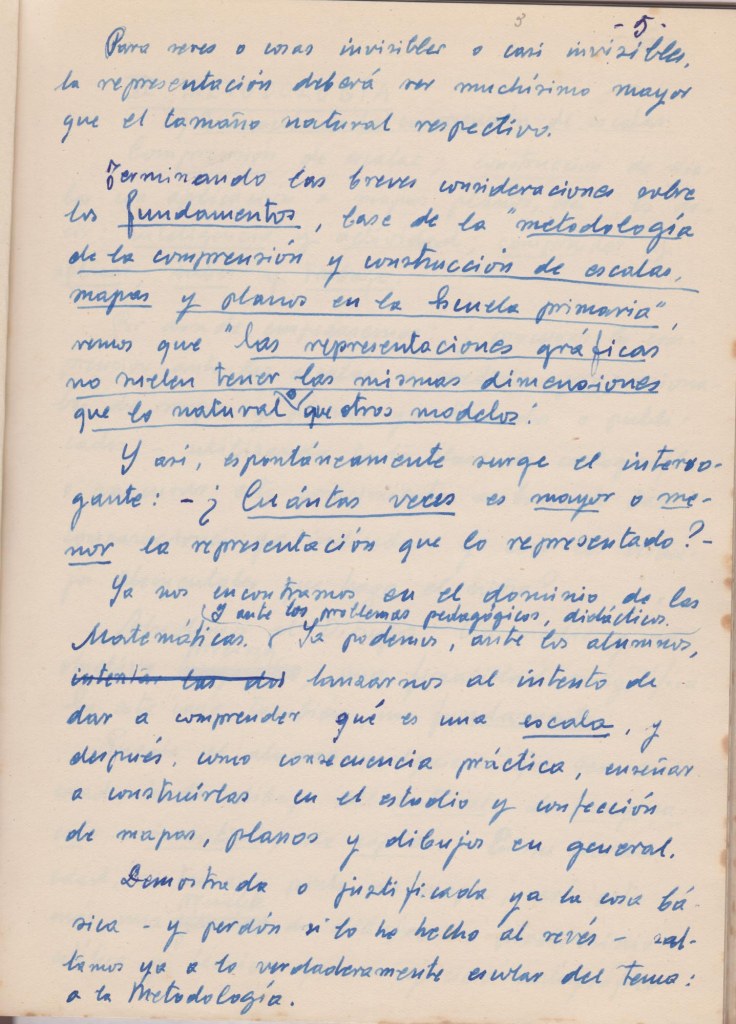 3 - 5 -
Para seres o cosas invisibles o casi invisibles,
la representación deberá ser muchísimo mayor
que el tamaño natural respectivo.
Terminando las breves consideraciones sobre
los fundamentos, base de la "metodología
de la comprensión y construcción de escalas,
mapas y planos en la Escuela primaria",
vemos que "las representaciones gráficas
no suelen tener las mismas dimensiones
que lo natural o que otros modelos."
Y así, espontáneamente surge el interro-
gante: - ¿Cuántas veces es mayor o me-
nor la representación que lo representado? -
Ya nos encontramos en el dominio de las
Y ante los problemas pedagógicos, didácticos.
Matemáticas. Ya podemos, ante los alumnos,
intentar las dos lanzarnos al intento de
dar a comprender qué es una escala, y
después, como consecuencia práctica, enseñar
a construirlas en el estudio y confección
de mapas, planos y dibujos en general.
Demostrada o justificada ya la cosa bá-
sica - y perdón si lo he hecho al revés - sal-
tamos ya a lo verdaderamente escolar del tema:
a la Metodología.